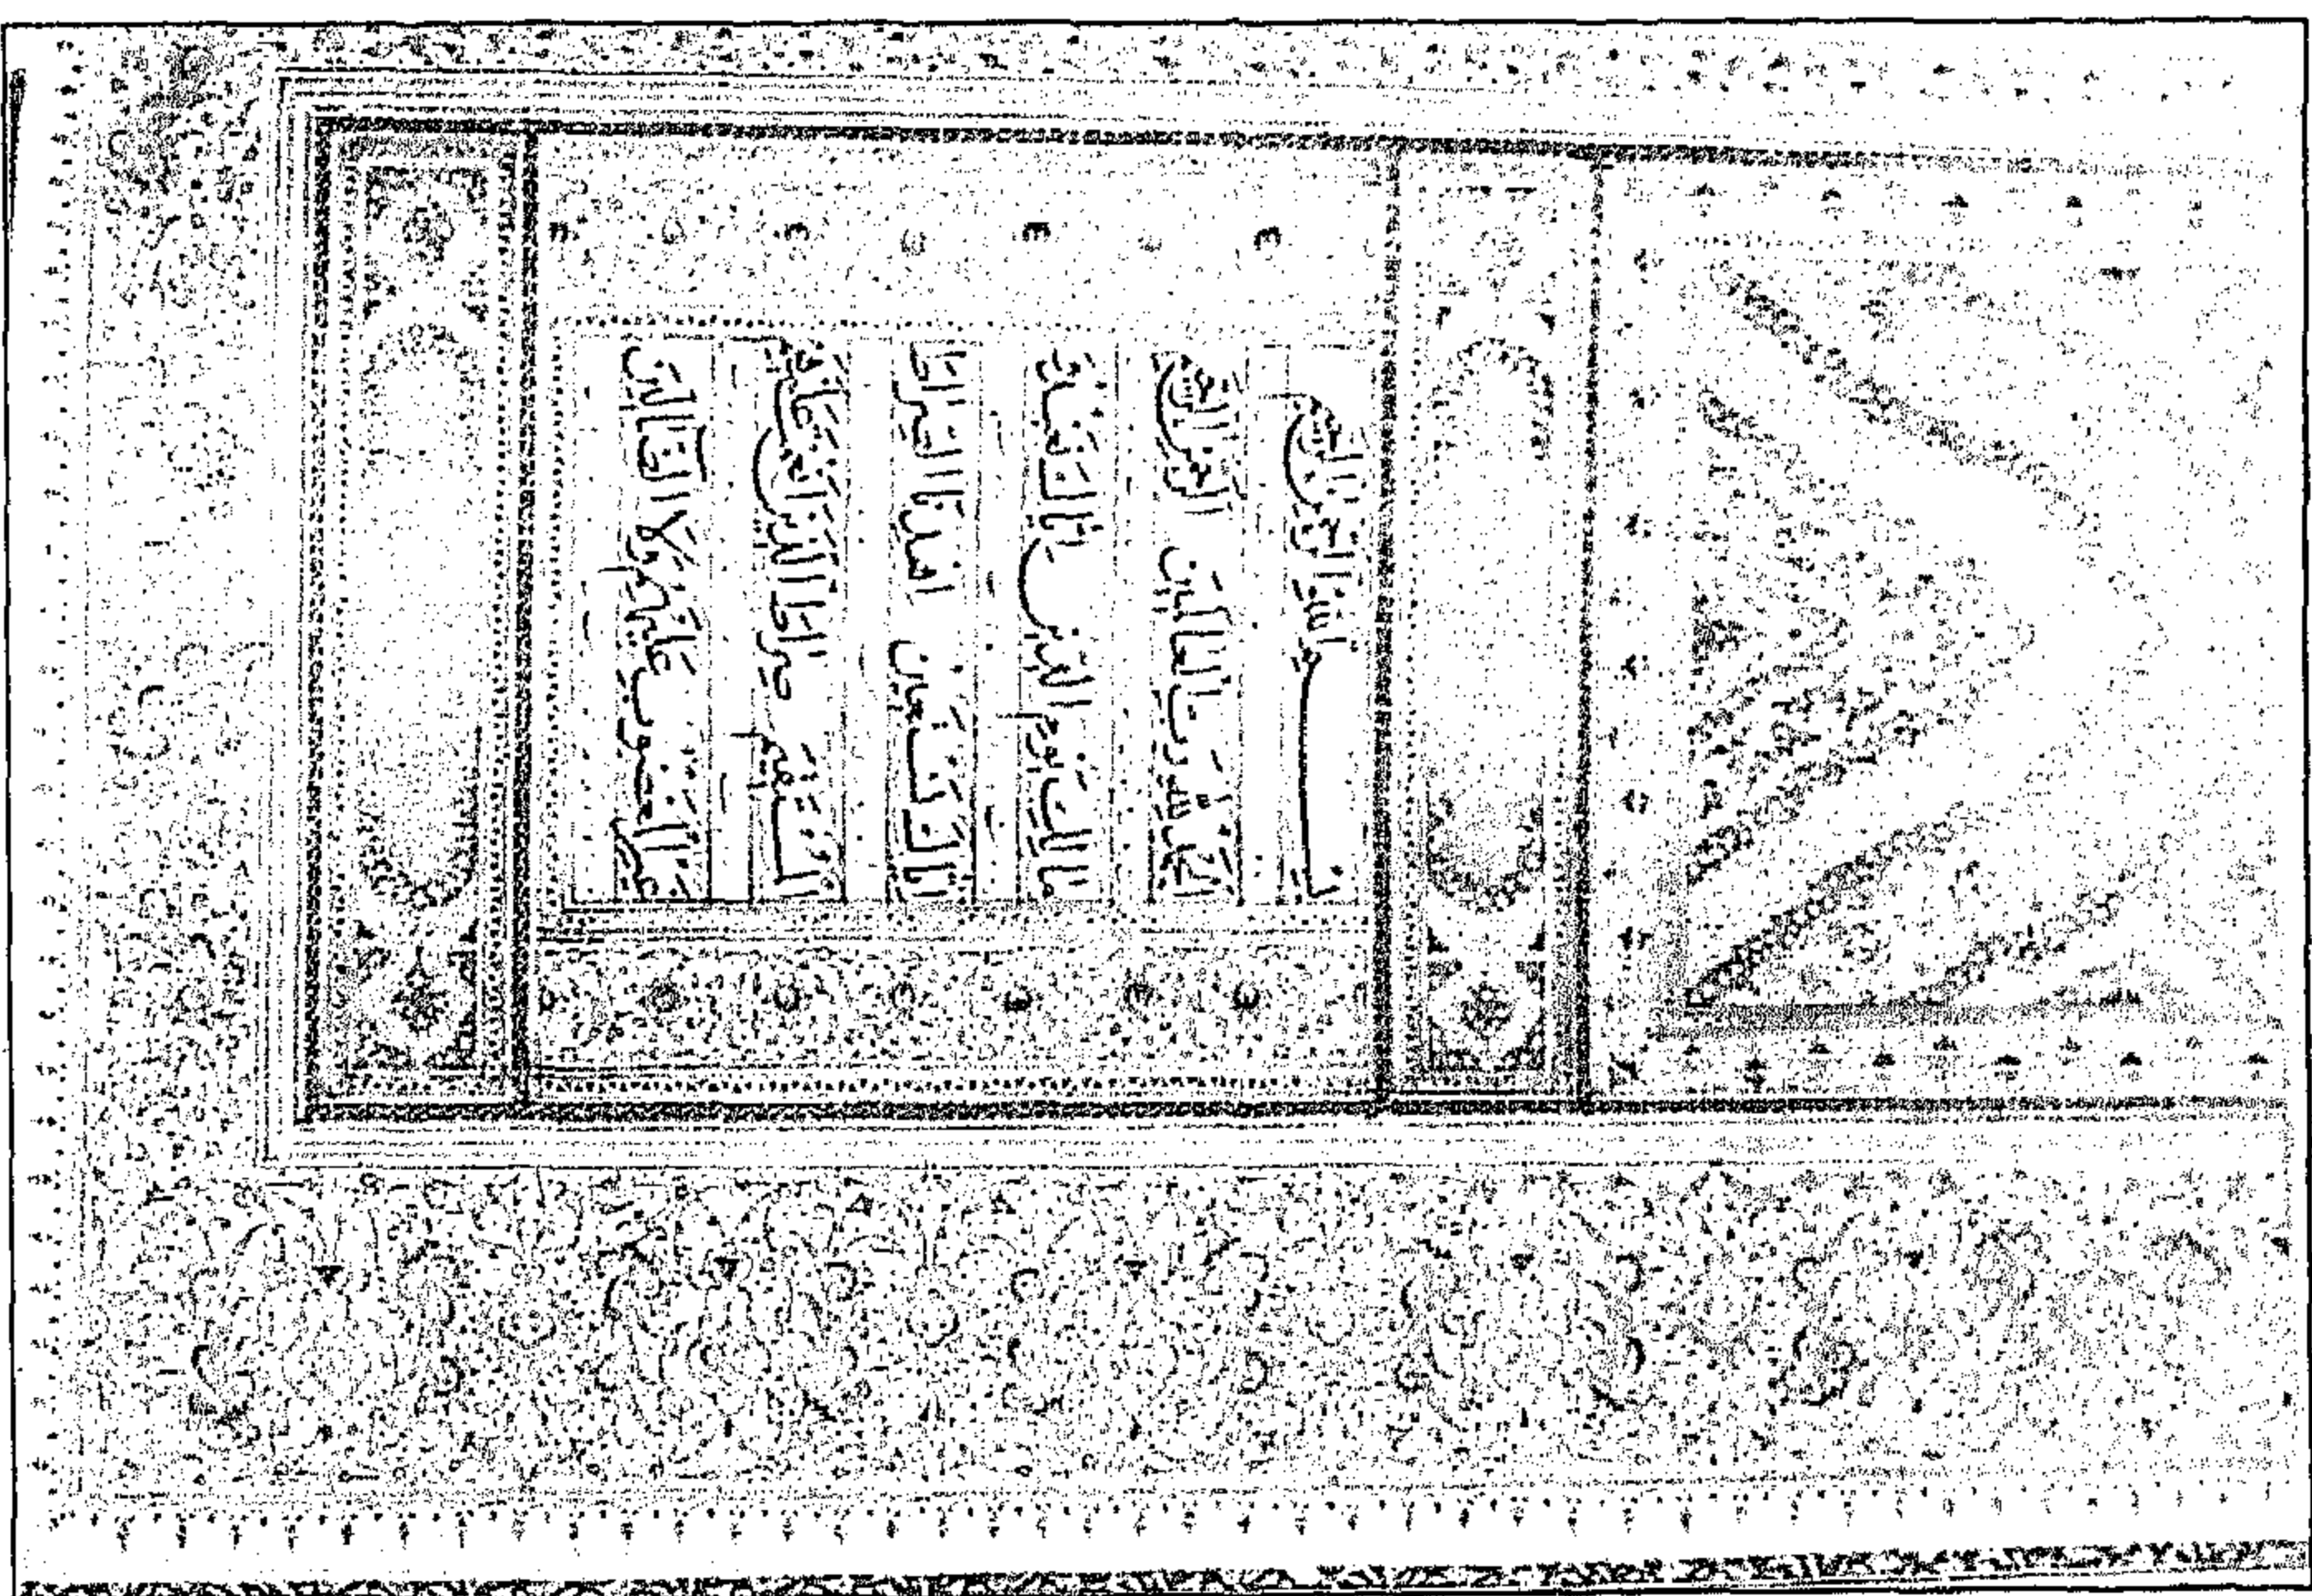 بِسْمِ اللهِ الرَّحْمٰنِ الرَّحِيمِ
اَلْحَمْدُ لِلّٰهِ رَبِّ الْعَالَمِينَ الرَّحْمٰنِ الرَّحِيمِ
مَالِكِ يَوْمِ الدِّينِ اِيَّاكَ نَعْبُدُ
وَاِيَّاكَ نَسْتَعِينُ اِهْدِنَا الصِّرَاطَ
الْمُسْتَقِيمَ صِرَاطَ الَّذِينَ اَنْعَمْتَ عَلَيْهِمْ
غَيْرِ الْمَغْضُوبِ عَلَيْهِمْ وَلَا الضَّالِّينَ